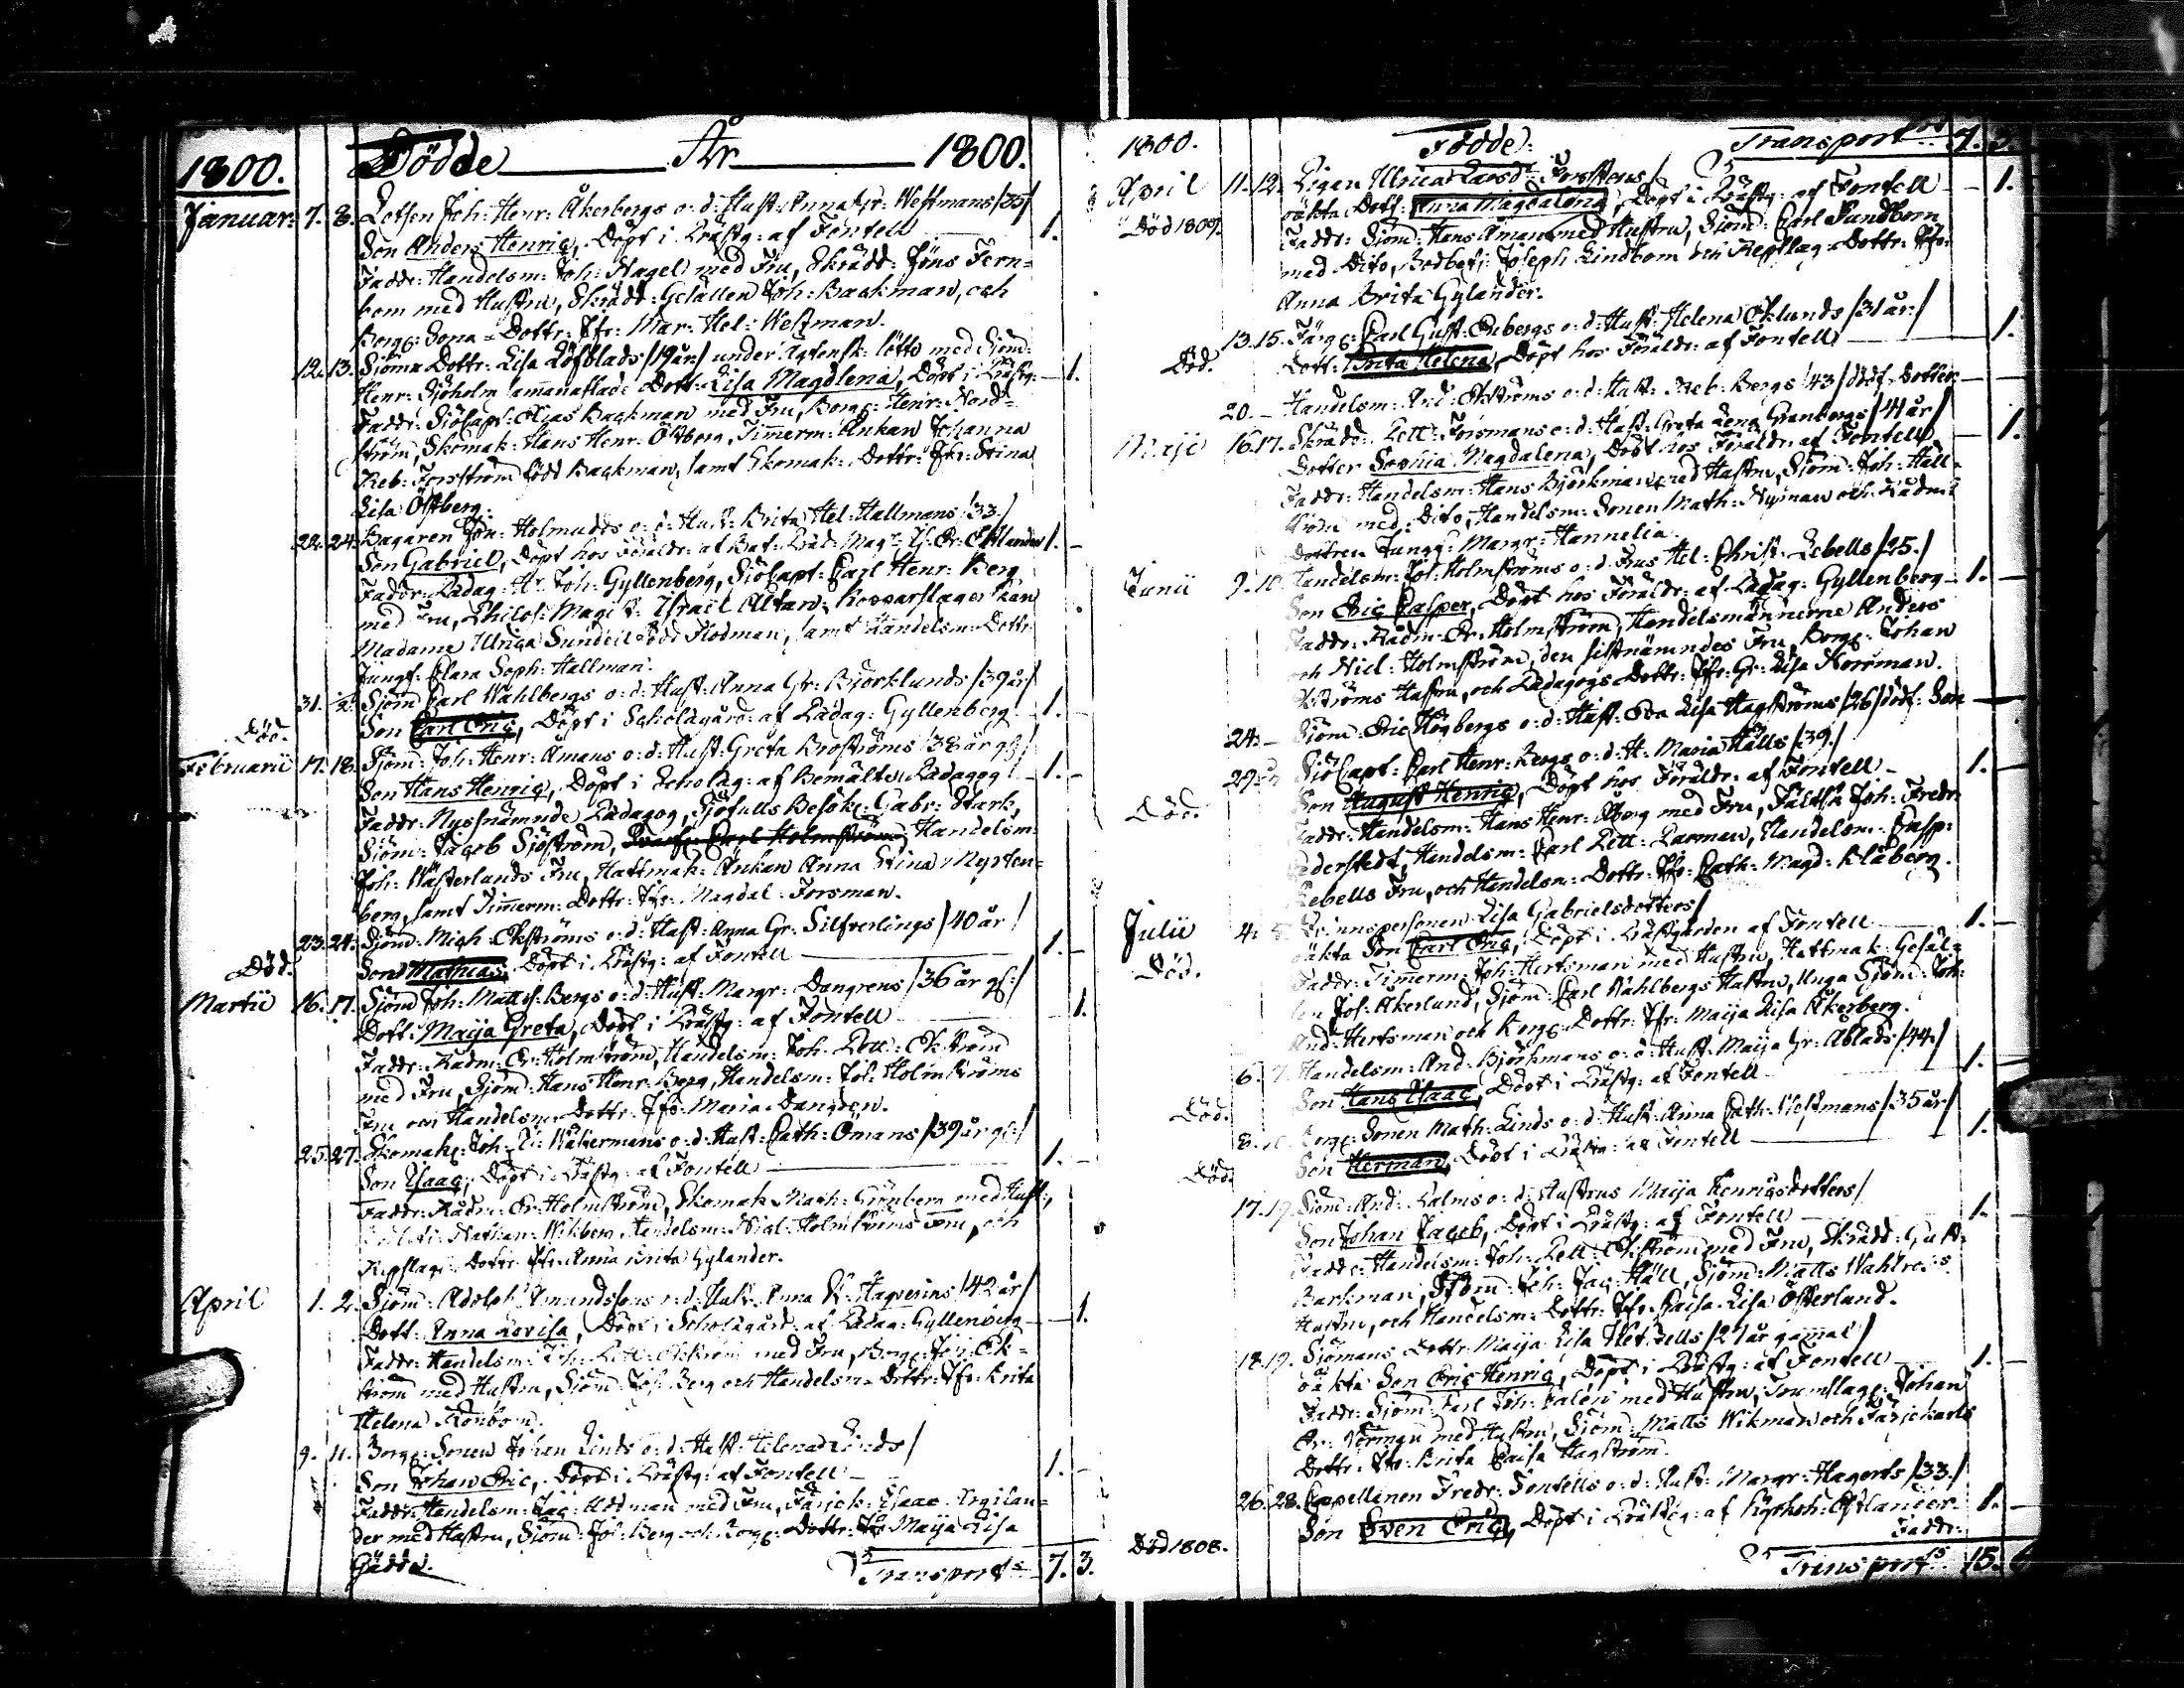 1800. Födde År 1800.
Januar: 7. 8. Lotsen Joh: Henr: Åkerbergs o: d: Hust: Anna Gr: Westmans /35/
Son Anders Henric, Döpt i Prästg: af Fontell 1.
Faddr: Handelsm: Joh: Nagel med Fru, Skrädd: Jöns Fern=
bom med Hustru, Skrädd: Gesällen Joh: Backman, och
Borg: Sona=Dottr: Jfr: Mar: Hel: Westman.
12. 13. Sjöma Dottr: Lisa Löfblads /19 år/ under Agtensk: löfte med Sjöm:
Henr: Sjöholm sammanaflade Dott: Lisa Magdlena, Döpt i Prästg: 1.
Faddr: SjöCapt: Elias Backman med Fru, Borg: Henr: Nord=
ström, Skomak: Hans Henr: Östberg, Timerm: Ankan Johanna
Reb: Forsström född Backman, samt Skomak: Dottr: Jfr: Stina
Lisa Östberg.
22. 24. Bagaren Jon: Holmudds o: d: Hust: Brita Hel: Hallmans /33/
Son Gabriel, Döpt hos Föräldr: af 1.
Faddr: Pädag: Hr Joh: Gyllenberg, SjöCapt: Carl Henr: Berg
med Fru, Philos: Magist: Israel Altan, Kopparslagar
Madame Ulrica Sundell född Flodman, samt Handelsm: Dottr:
Jungf: Clara Soph: Hallman.
31. 2. Sjöm: Carl Wahlbergs o: d: Hust: Anna Gr: Björklunds /39 år/
Död. Son Carl Eric, Döpt i Scholægård: af Pädag: Gyllenberg 1.
Februarii 17. 18. Sjöm: Joh: Henr: Åmans o: d: Hust: Greta Broströms /38 år gl:/
Son Hans Henric, Döpt i Scholæg: af Bemälte Pädagog 1.
Faddr: Nyssnämnde Pädagog, Sjötulls Besök: Gabr: Stark,
Sjöm: Jacob Sjöström, Handelsm:
Joh: Wästerlunds Fru, Hattmak: Ankan Anna Stina Nysten=
berg, samt Timerm: Dottr: Jfr: Magdal: Forsman.
23. 24. Sjöm: Mich: Ekströms o: d: Hust: Anna Gr: Silfverlings /40 år/
Död. Son Mathias, Döpt i Prästg: af Fontell 1.
Martii 16. 17. Sjöm: Joh: Matts: Bergs o: d: Hust: Margr: Dangrens /36 år gl:/
Dott: Maija Greta, Döpt i Prästg: af Fontell 1.
Faddr: Rådm: Er: Holmström, Handelsm: Joh: Pett: Ekström
med Fru, Sjöm: Hans Henr: Berg, Handelsm: Joh: Holmströms
Fru och Handelsm: Dottr: Jfr: Maria Dangren.
25. 27. Skomak: Joh: Er: Wäkermans o: d: Hust: Cath: Ömans /39 år gl:/
Son Isaac, Döpt i Prästg: af Fontell 1.
Faddr: Rådm: Er: Holmström, Skomak: Math: Grönberg med Hust:,
Nathan: Wikberg, Handelsm: Nicl: Holmströms Fru, och
Repslag: Dottr: Jfr: Anna Brita Gylander.
April 1. 2. Sjöm: Adolph Amundssons o: d: Hust: Anna Hagverins /42 år/
Dott: Anna Lovisa, Döpt i Scholægård: af Pädag: Gyllenberg 1.
Faddr: Handelsm: Joh: Pett: Ekström med Fru, Borg: Joh: Ek=
ström med Hustru, Sjöm: Joh: Berg och Handelsm: Dottr: Jfr: Brita
Helena Rönbom.
9. 11. Borg: Sonen Johan Linds o: d: Hust: Helena Linds/
Son Johan Eric, Döpt i Prästg: af Fontell 1.
Faddr: Handelsm: Jac: Uddman med Fru, Färjek: Isaac Argilan=
der med Hustru, Sjöm: Joh: Berg och Borg: Dottr: Jfr: Maija Lisa
Gädda.
Transport 7. 3.
1800. Födde: Transport 7. 3.
April 11. 12. Pigan Ulrica Larsd: Forsstens/
oäkta Dott: Anna Magdalena, Döpt i Prästg: af Fontell 1.
Död 1809. Faddr: Sjöm: Hans Åman med Hustru, Sjöm: Carl Sundbom
med Dito, Joseph Lindbom och Repslag: Dottr: Jfr:
Anna Brita Gylander.
13. 15. Färg: Carl Gust: Enbergs o: d: Hust: Helena Eklunds /31 år/
Död. Dott: Brita Helena, Döpt hos Föräldr: af Fontell 1.
20. Handelsm: And: Ekströms o: d: Hust: Reb: Bergs /43/ dödf: Dotter
Maji 16. 17. Skrädd: Pett: Forsmans o: d: Hust: Greta Lena Granbergs /41 år/
Dotter Sophia Magdalena, Döpt hos Föräldr: af Fontell 1.
Faddr: Handelsm: Hans Björkman med Hustru, Sjöm: Joh: Häll=
ström med Dito, Handelsm: Sonen Math: Nyman och Rådm:
Dottren Jungf: Margr: Hannelia.
Junii 9. 10. Handelsm: Joh: Holmströms o: d: Frus Hel: Christ: Lebells /25./
Son Eric Casper, Döpt hos Föräldr: af Pädag: Gyllenberg 1.
Faddr: Rådm: Er: Holmström, Handelsmännerne Anders
och Nicl: Holmström, den sistnämndes Fru, Borg: Johan
Ekströms Hustru, och Pädagogs Dottr: Jfr: Gr: Lisa Norrman.
24. Sjöm: Eric Högbergs o: d: Hust: Eva Lisa Hagströms /26/ dödf: Son
29. SjöCapt: Carl Henr: Bergs o: d: H: Maria Hälls /39./
Son August Henric, Döpt hos Föräldr: af Fontell 1.
Död. Faddr: Handelsm: Hans Henr: Åberg med Fru, Joh: Fredr:
Cederstedt, Handelsm: Carl Pett: Parman, Handelsm: Casp:
Lebells Fru, och Handelsm: Dottr: Jfr: Cath: Magd: Blåberg.
Julii 4. 5. Qvinnspersonen Lisa Gabrielsdotters/
Död. oäkta Son Carl Eric, Döpt i Prästgården af Fontell 1.
Faddr: Timerm: Joh: Hertsman med Hustru, Hattmak: Gesäl=
len Joh: Åkerlund, Sjöm: Carl Wahlbergs Hustru, Unga Sjöm: Joh:
And: Hertsman och Borg: Dottr: Jfr: Maija Lisa Åkerberg.
6. 7. Handelsm: And: Björkmans o: d: Hust: Maija Gr: Ablads /44./
Död. Son Hans Isaac, Döpt i Prästg: af Fontell 1.
8. Borg: Sonen Math: Linds o: d: Hust: Anna Cath: Westmans /35 år/
Död. Son Herman, Döpt i Prästg: af Fontell 1.
17. 19. Sjöm: And: Palms o: d: Hustrus Maija Henricsdotters/
Son Johan Jacob, Döpt i Prästg: af Fontell 1.
Faddr: Handelsm: Joh: Pett: Ekström med Fru, Skrädd: Gust:
Barkman, Sjöm: Joh: Jac: Häll, Sjöm: Matts Wahlroos
Hustru, och Handelsm: Dottr: Jfr: Caisa Lisa Österlund.
18. 19. Sjömans Dottr: Maija Lisa /27 år gammal/
oäkta Son Eric Henric, Döpt i Prästg: af Fontell 1.
Faddr: Sjöm: Carl Joh: Palen med Hustru, Trumslag: Johan
Er: med Hustru, Sjöm: Matts Wikman och Färjekarls
Dottr: Jfr: Brita Caisa Hagström.
26. 28. Capellanen Fredr: Fontells o: d: Hust: Margr: Hagerts /33./
Son Sven Eric, Döpt i Prästg: af Kyrkoh: Estlander 1.
Död 1808. Faddr:
Transport 15.